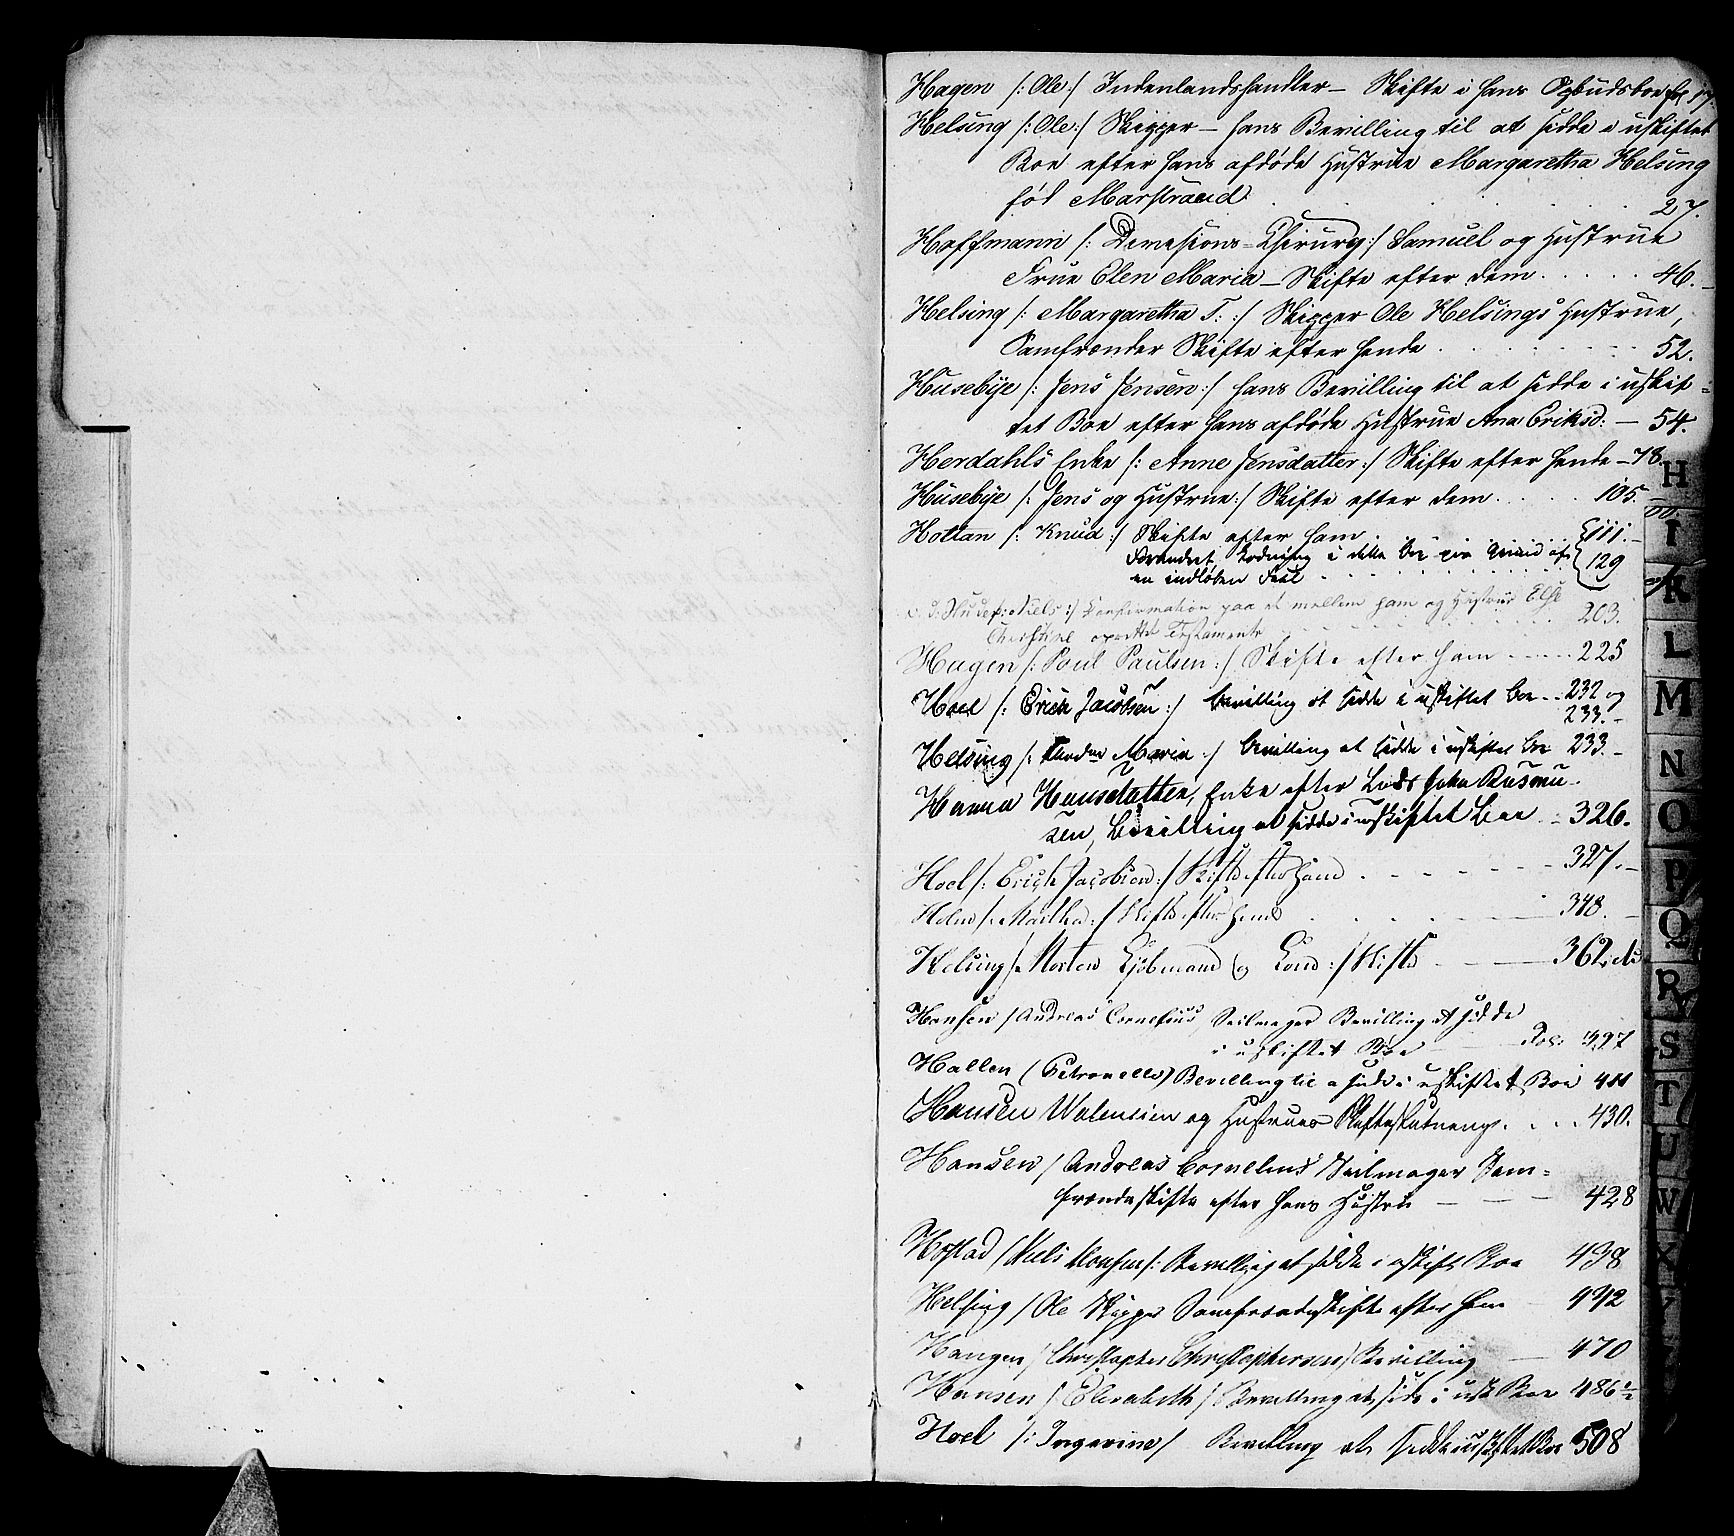 Hagen /: Ole:/ Indenlandshandler – Skifte i hans Opbudsboe fol 17.
Helsing /: Ole:/ Skipper – hans Bevilling til at sidde i uskiftet
Boe efter hans afdøde Hustrue Margaretha Helsing
fød Marstrand . . . 27.
Hoffmann /: Divisions-Chirurg:/ Samuel og Hustrue
Frue Elen Maria – Skifte efter dem . . . . . 46.
Helsing /: Margaretha F: :/ Skipper Ole Helsings Hustrue,
Samfrænder Skifte efter hende . . . . 52.
Husebÿe /: Jens Jensen:/ hans Bevilling til at sidde i uskif-
tet Boe efter hans afdøde Hustrue Ana Eriksd: – 54.
Herdahls Enke /: Anne Jensdatter:/ Skifte efter hende – 78.
Husebÿe /: Jens og Hustrue:/ Skifte efter dem . . . . . 105.
Holtan /: Knud:/ Skifte efter ham . . . . 111.
Forandret Lodning i dette Boe paa Grund af
en indløben Feil . . . . 129
Niels:/ Confirmation paa et mellem ham og Hustrue Else
Christine oprettet Testamente . . . . 203.
Hagen /: Poul Paulsen:/ Skifte efter ham . . . . 225
Hoel /: Erich Jacobsen:/ bevilling at sidde i uskiftet Boe . . 232 og
233.
Helsing /: Maria:/ bevilling at sidde i uskiftet Boe 233.
Hanna Hansdatter, Enke efter Lods John Rasmu-
sen, bevilling at sidde i uskiftet Boe . . 326.
Hoel /: Erich Jacobsen:/ Skifte efter ham . . . . 327.
Holm /: Martha:/ Skifte efter hende . . . . 348.
Helsing /: Morten Kjøbmand og Kone:/ Skifte . . 362.
Hansen / Andreas Cornelius Seilmager Bevilling at sidde
i uskiftet Boe – Fol: 397
Hallen (Petronelle) Bevilling til a sidde i uskiftet Boe 411
Hansen Valensin og Hustrues Skifteslutning. . . . 430.
Hansen / Andreas Cornelius Seilmager Sam-
frændeskifte efter hans Hustru – – – 428
Hofstad / Niels Monsen /: Bevilling at sidde i uskift Boe 438
Helsing / Ole Skipper Samfrændeskifte efter ham 442
Haugen / Christopher Christophersen / Bevilling – 470
Hansen / Elisabeth / Bevilling at side i usk Boe 486½
Hoel /: Ingevine / Bevilling at sidde i uskiftet Boe 508
H
I
K
L
M
N
O
P
Q
R
S
T
U
W
X
Y